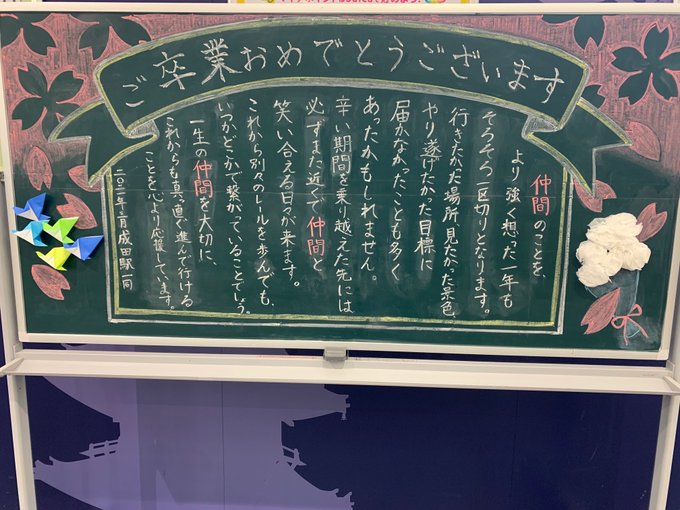 ご卒業おめでとうございます
仲間のことを、
より強く想った一年も
そろそろ一区切りとなります。
行きたかた場所、見たかった景色、
やり遂げたかった目標に
届かなかったことも多く
あったかもしれません。
辛い期間を乗り越えた先には
必ずまた近くで仲間と
笑い合える日々が来ます。
これから別々のレールを歩んでも、
いつかどこかで繋がっていることでしょう。
一生の仲間を大切に、
これからも真っ直ぐ進んで行ける
ことを心より応援しています。
二〇二一年三月 成田駅一同